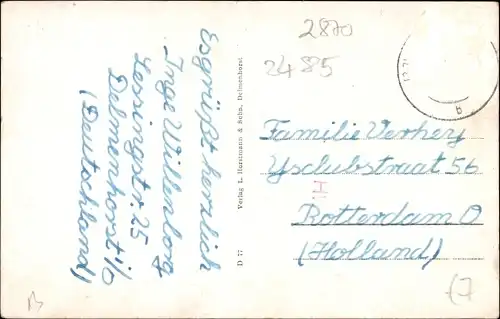 Es grüßt herzlich
Inge Willenborg
Lessingstr. 25
Delmenhorst i/O
(Deutschland)
Verlag L. Horstmann & Sohn, Delmenhorst
D 77
2870
2485
Familie Verhey
Ysclubstraat 56
I
Rotterdam O
(Holland)
B
b